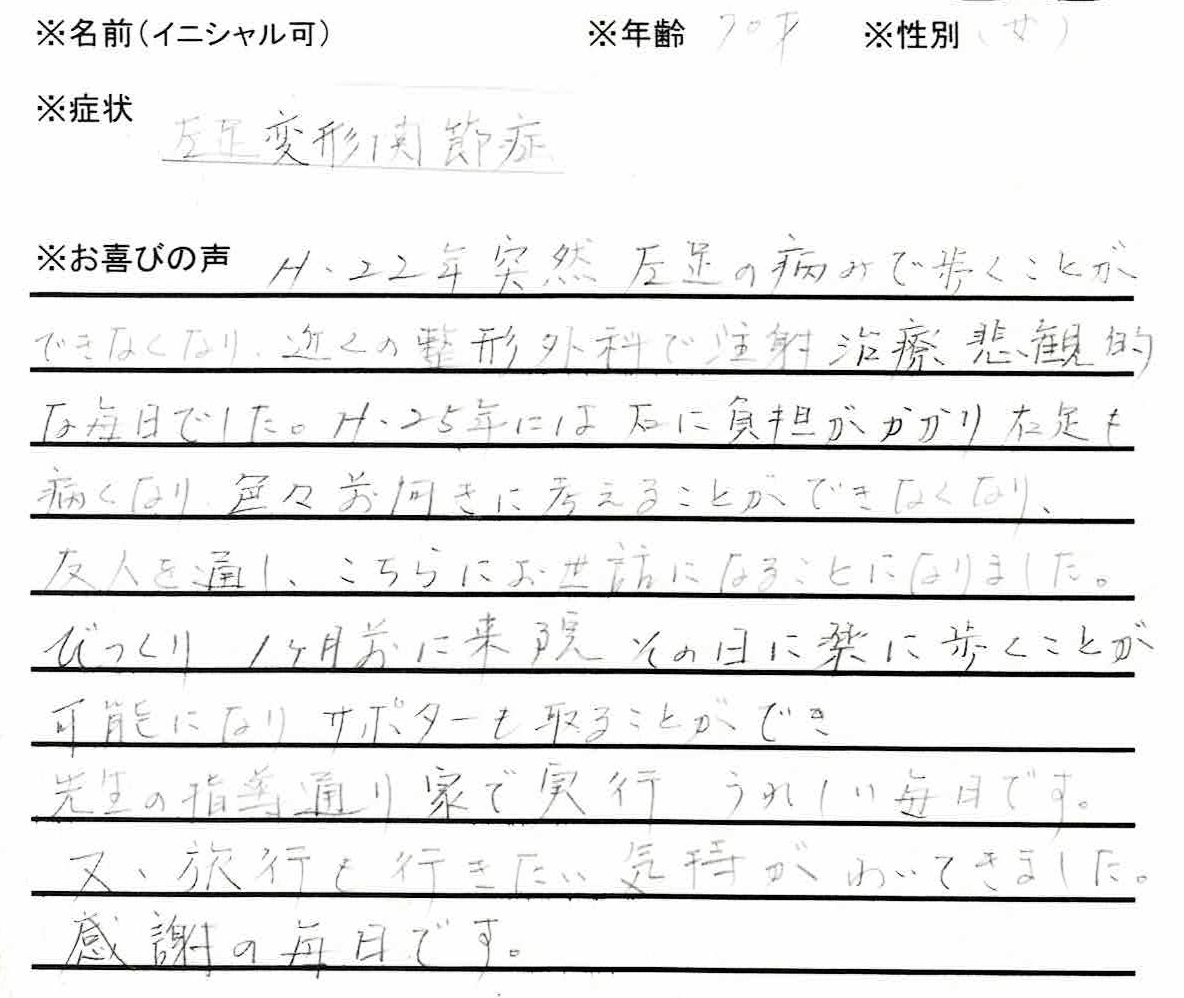 ※名前(イニシャル可) ※年齢 70才 ※性別 (女)
※症状 左足変形関節症
※お喜びの声 H.22年突然 左足の病みで歩くことが
できなくなり、近くの整形外科で注射治療、悲観的
な毎日でした。H.25年には右に負担がかかり右足も
病くなり、色々前向きに考えることができなくなり、
友人を通し、こちらにお世話になることになりました。
びっくり 1ヶ月前に来院 その日に楽に歩くことが
可能になり サポターも取ることができ
先生の指導通り家で実行 うれしい毎日です。
又、旅行も行きたい気持がわいてきました。
感謝の毎日です。